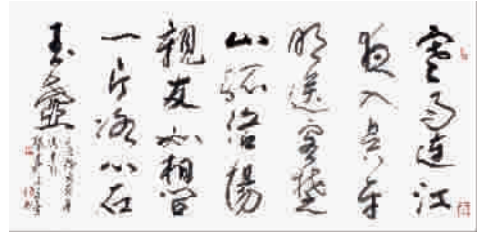 寒雨连江
夜入吴平
明送客楚
山孤洛阳
亲友如相问
一片冰心在
玉壶